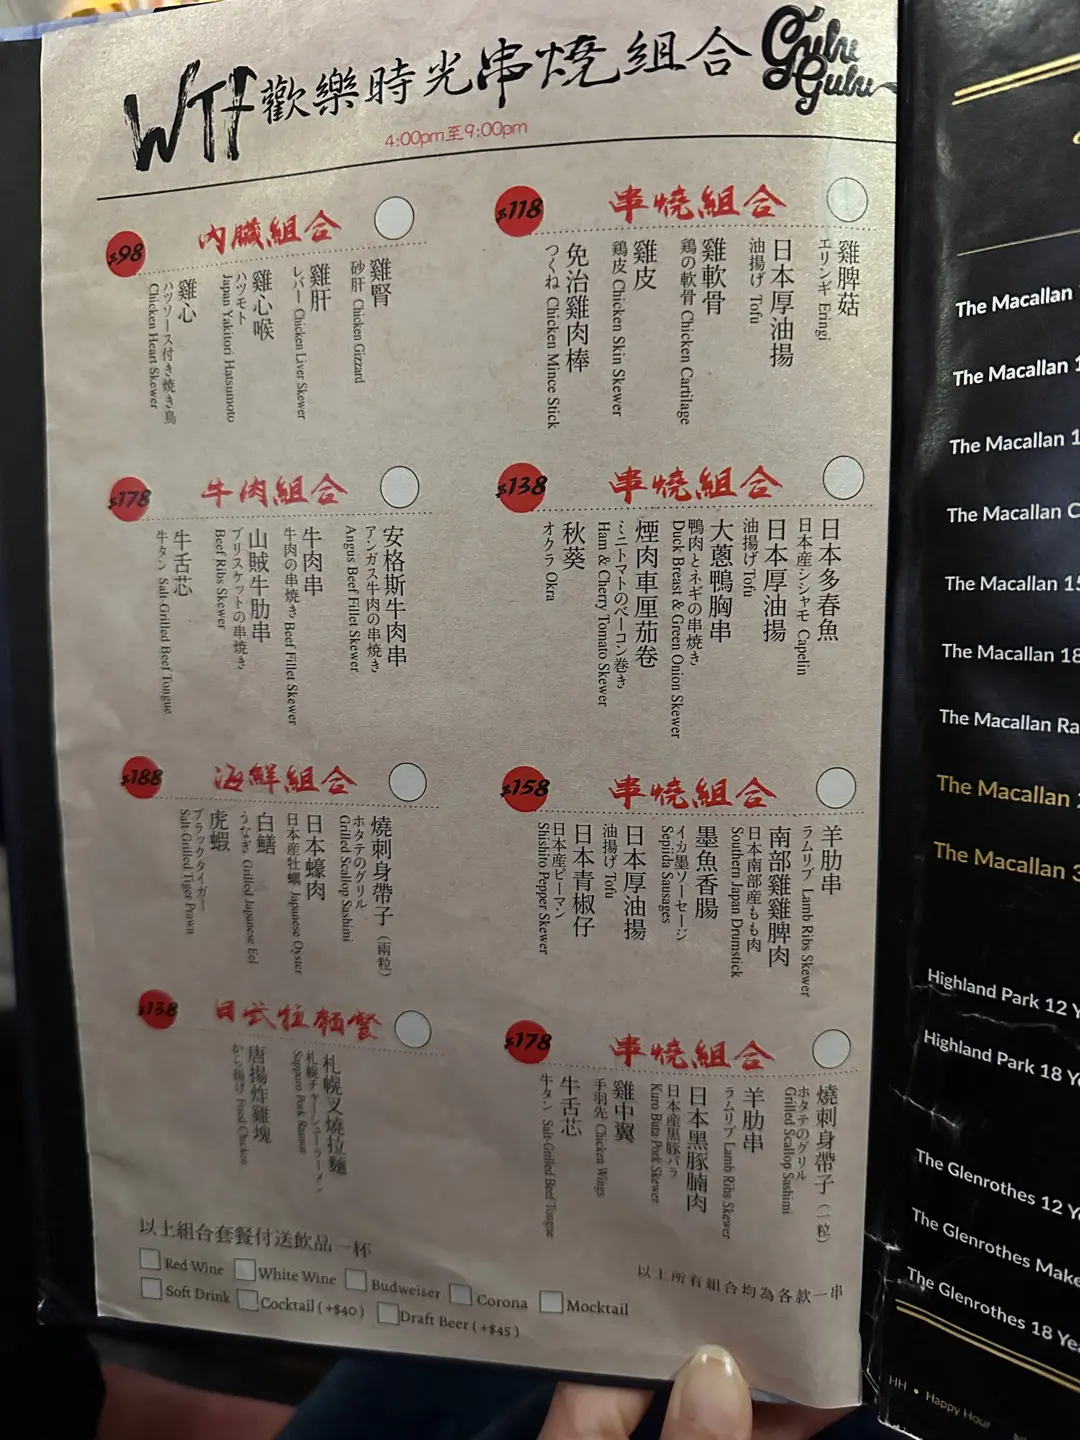 WTF 歡樂時光串燒組合 Gulu Gulu
4:00pm至9:00pm
$118 串燒組合
雞脾菇
エリンギ Eringi
日本厚油揚
油揚げ Tofu
雞軟骨
鶏の軟骨 Chicken Cartilage
雞皮
鶏皮 Chicken Skin Skewer
免治雞肉棒
つくね Chicken Mince Stick
$98 內臟組合
雞腎
砂肝 Chicken Gizzard
雞肝
レバー Chicken Liver Skewer
雞心喉
ハツモト
Japan Yakitori Hatsumoto
雞心
ハツソース付き焼き鳥
Chicken Heart Skewer
$138 串燒組合
日本多春魚
日本産シシャモ Capelin
日本厚油揚
油揚げ Tofu
大蔥鴨胸串
鴨肉とネギの串焼き
Duck Breast & Green Onion Skewer
煙肉車厘茄卷
ミニトマトのベーコン巻き
Ham & Cherry Tomato Skewer
秋葵
オクラ Okra
$178 牛肉組合
安格斯牛肉串
アンガス牛肉の串焼き
Angus Beef Fillet Skewer
牛肉串
牛肉の串焼き Beef Fillet Skewer
山賊牛肋串
ブリスケットの串焼き
Beef Ribs Skewer
牛舌芯
牛タン Salt-Grilled Beef Tongue
$158 串燒組合
羊肋串
ラムリブ Lamb Ribs Skewer
南部雞雞脾肉
日本南部産もも肉
Southern Japan Drumstick
墨魚香腸
イカ墨ソーセージ
Sepiida Sausages
日本厚油揚
油揚げ Tofu
日本青椒仔
日本産ピーマン
Shishito Pepper Skewer
$188 海鮮組合
燒刺身帶子（兩粒）
ホタテのグリル
Grilled Scallop Sashimi
日本蠔肉
日本産牡蠣 Japanese Oyster
白鱔
うなぎ Grilled Japanese Eel
虎蝦
ブラックタイガー
Salt-Grilled Tiger Prawn
$178 串燒組合
燒刺身帶子（一粒）
ホタテのグリル
Grilled Scallop Sashimi
羊肋串
ラムリブ Lamb Ribs Skewer
日本黑豚腩肉
日本産黒豚バラ
Kuro Buta Pork Skewer
雞中翼
手羽先 Chicken Wings
牛舌芯
牛タン Salt-Grilled Beef Tongue
$138 日式拉麵餐
札幌叉燒拉麵
札幌チャーシューラーメン
Sapporo Pork Ramen
唐揚炸雞塊
から揚げ Fried Chicken
以上所有組合均為各款一串
以上組合套餐付送飲品一杯
Red Wine White Wine Budweiser Corona Mocktail
Soft Drink Cocktail (+$40) Draft Beer (+$45)
The Macallan
The Macallan 1
The Macallan 1
The Macallan C
The Macallan 15
The Macallan 18
The Macallan Ra
The Macallan
The Macallan 3
Highland Park 12 Y
Highland Park 18 Ye
The Glenrothes 12 Y
The Glenrothes Make
The Glenrothes 18 Yea
HH • Happy Hour